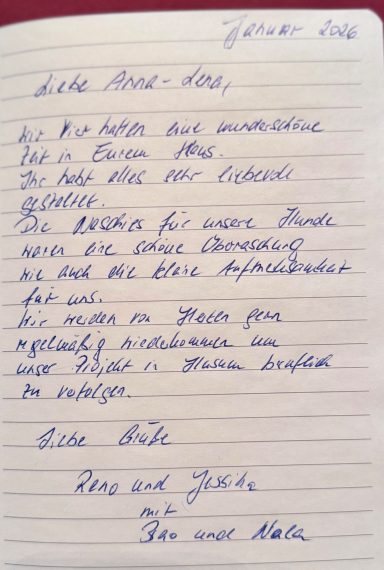 Januar 2026
Liebe Anna-Lena,
Wir Vier hatten eine wunderschöne
Zeit in Eurem Haus.
Ihr habt alles sehr liebevoll
gestaltet.
Die Naschies für unsere Hunde
waren eine schöne Überaschung
wie auch die kleine Aufmerksamkeit
für uns.
Wir werden von Herzen gern
regelmäßig wiederkommen um
unser Projekt in Husum beruflich
zu verfolgen.
Liebe Grüße
Reno und Jessika
mit
Bao und Nala